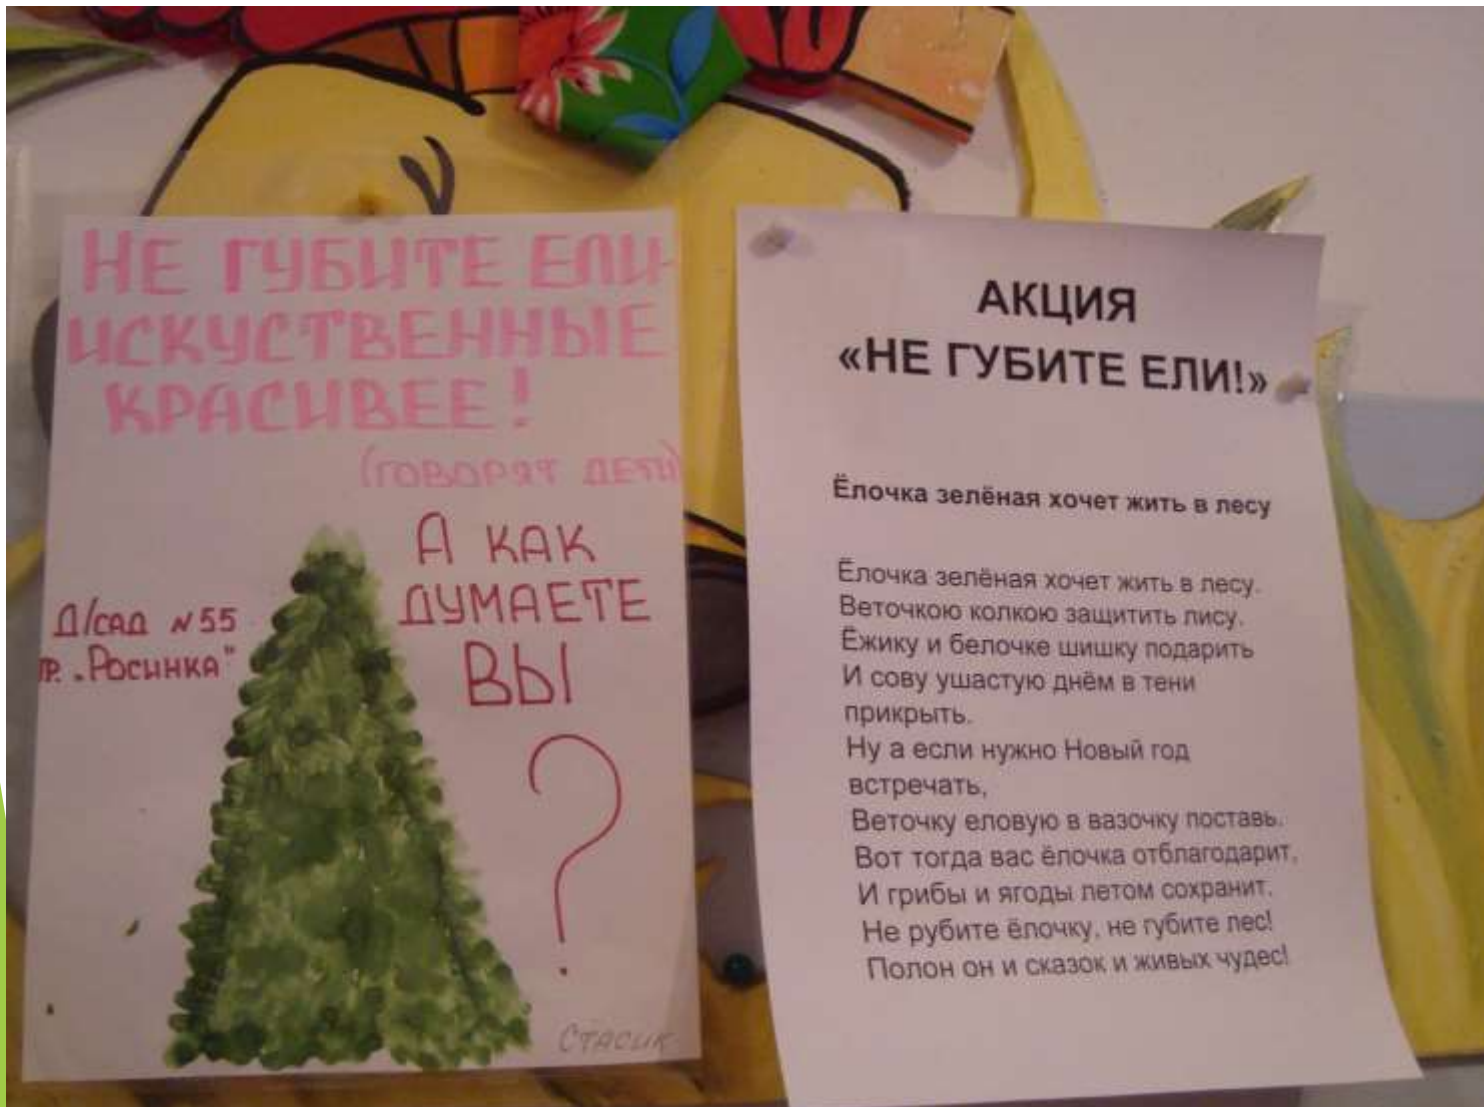 НЕ ГУБИТЕ ЕЛИ-
ИСКУСТВЕННЫЕ
КРАСИВЕЕ!
(ГОВОРЯТ ДЕТИ)
А КАК
ДУМАЕТЕ
ВЫ
?
Д/САД №55
ГР. „РОСИНКА"
СТАСИК
АКЦИЯ
«НЕ ГУБИТЕ ЕЛИ!»
Ёлочка зелёная хочет жить в лесу
Ёлочка зелёная хочет жить в лесу.
Веточкою колкою защитить лису.
Ёжику и белочке шишку подарить
И сову ушастую днём в тени
прикрыть.
Ну а если нужно Новый год
встречать,
Веточку еловую в вазочку поставь.
Вот тогда вас ёлочка отблагодарит,
И грибы и ягоды летом сохранит.
Не рубите ёлочку, не губите лес!
Полон он и сказок и живых чудес!